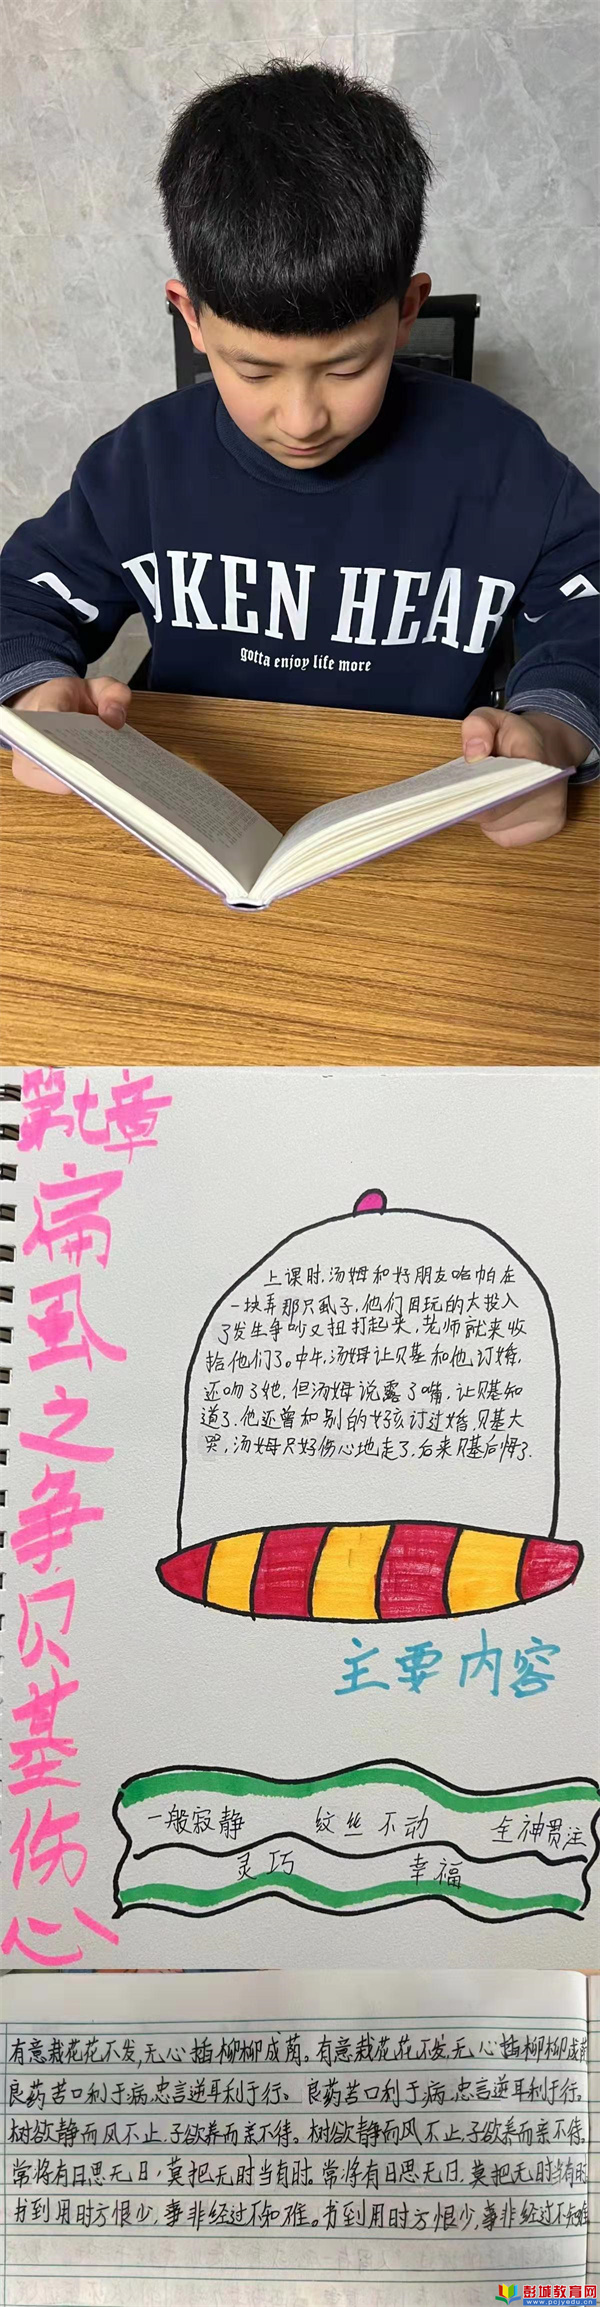 BROKEN HEAR
gotta enjoy life more
第七章
扁虱之争贝基伤心
上课时,汤姆和好朋友哈帕在
一块弄那只虱子,他们因玩的太投入
了发生争吵又扭打起来,老师就来收
拾他们了。中午,汤姆让贝基和他订婚,
还吻了她,但汤姆说露了嘴,让贝基知
道了,他还曾和别的女孩订过婚,贝基大
哭,汤姆只好伤心地走了,后来贝基后悔了.
主要内容
一般寂静 纹丝不动 全神贯注
灵巧 幸福
有意栽花花不发,无心插柳柳成荫。有意栽花花不发,无心插柳柳成荫
良药苦口利于病,忠言逆耳利于行。良药苦口利于病,忠言逆耳利于行。
树欲静而风不止,子欲养而亲不待。树欲静而风不止,子欲养而亲不待。
常将有日思无日,莫把无时当有时。常将有日思无日,莫把无时当有时
书到用时方恨少,事非经过不知难。书到用时方恨少,事非经过不知难
彭城教育网
www.pcjyedu.cn